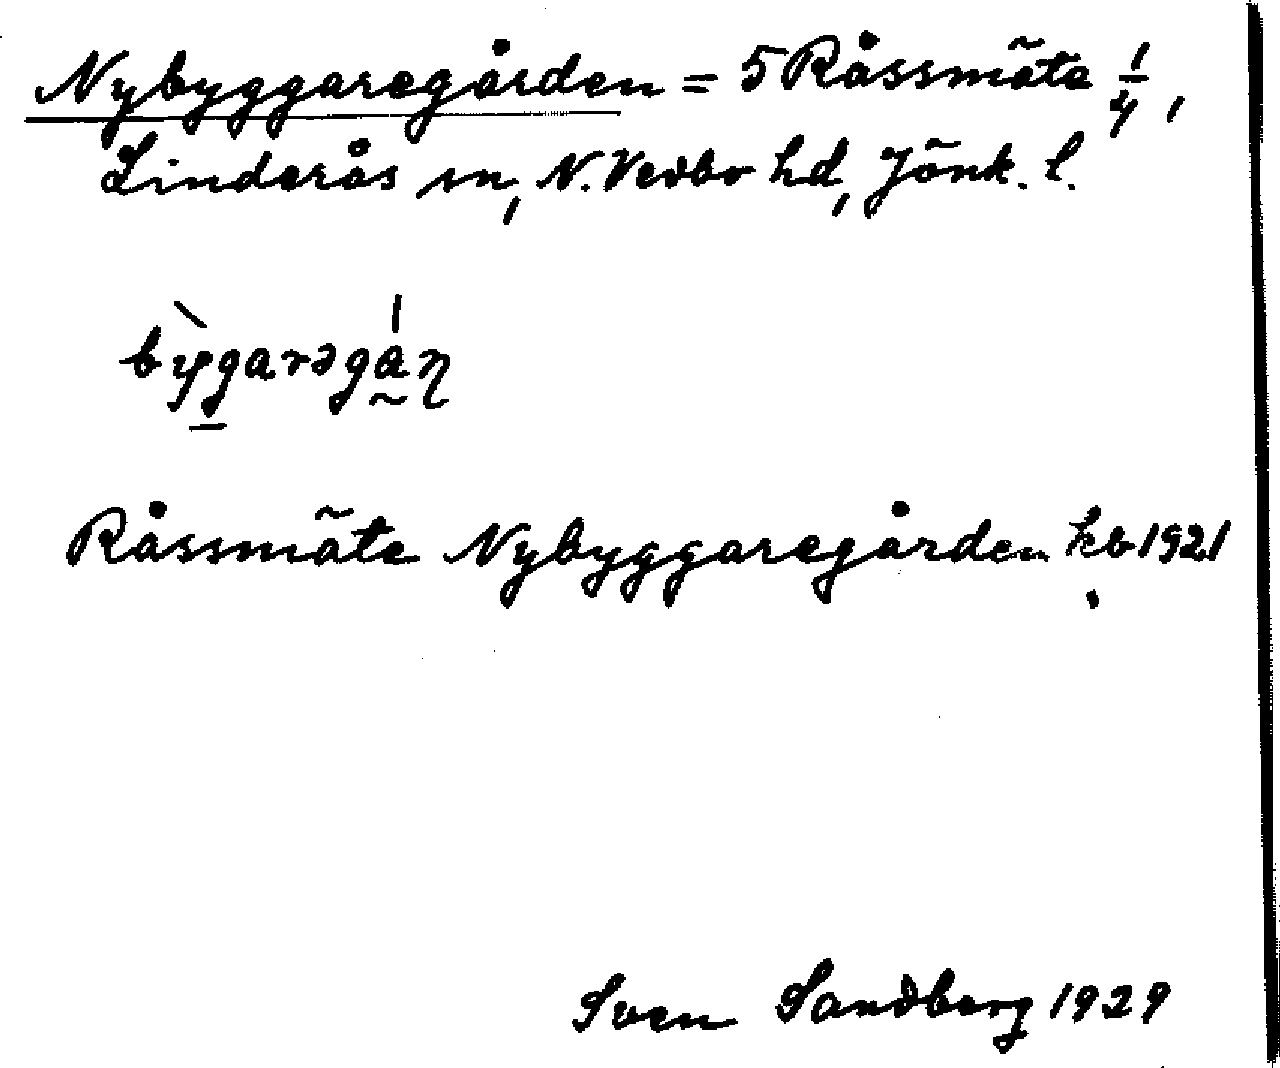 Nybyggaregården = 5 Råssmäte 1/4,
Linderås sn, N. Vedbo hd, Jönk. l.
bỳgarəgáɳ
Råssmäte Nybyggaregården kb 1921
Sven Sandberg 1929